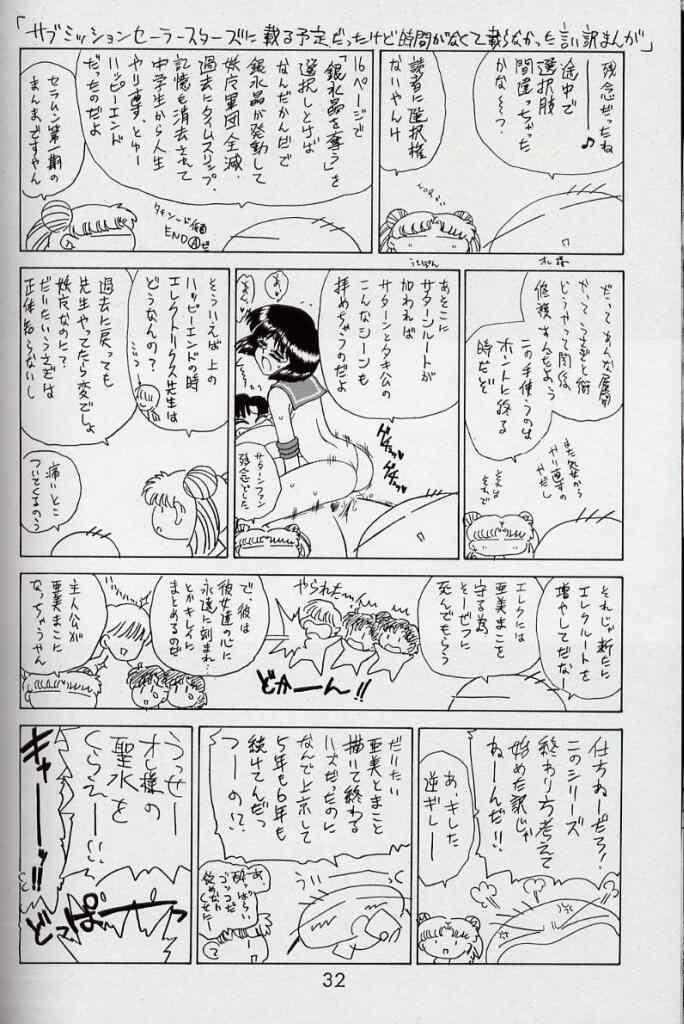 「サブミッションセーラースターズに載る予定だったけど時間がなくて載らなかった言い訳まんが」
残念だったね
──♪
途中で
選択肢
間違っちゃった
かな~~?
読者に選択権
ないやんけ
うさぎちゃん
オレ様
16ページで
「銀水晶を奪う」を
選択しとけば
なんだかんだで
銀水晶が発動して
妖魔軍団全滅
過去にタイムスリップ、
記憶も消去されて
中学生から人生
やり直す、とゆー
ハッピーエンド
だったのだよ
タキシード仮面
END④だ
セラムン第一期の
まんまですやん
だってあんな展開
どうやって関係
修復すんだよう
この手使うのは
ホントに終る
時だぞ
あそこに
サターンルートが
加われば
サターンとタキ公の
こんなシーンも
拝めちゃうのだよ
サターンファン
残念でした
そういえば上の
ハッピーエンドの時
エレクトリクス先生は
どうなんの?
過去に戻っても
先生やってたら変でしょ
妖魔なのに?
だいたいうさぎは
正体知らないし
痛いとこ
ついてくるのう
それじゃ新たに
エレクルートを
増やしてだなー
エレクには
亜美まこを
守る為
そーぜつに
死んでもらう
やられた…
どかーーん!!
で、彼は
彼女達の心に
永遠に刻まれ…
とかキレイに
まとめるのだ
主人公が
亜美まこに
なっちゃうやん
仕方ねーだろ!
このシリーズ
終わり方考えて
始めた訳じゃ
ねーんだ!!
あ、キした
逆ギレー
だいたい
亜美とまこと
描いて終わる
ハズだったのに
なんで上京して
5年も6年も
続けてんだっ
つーの!?
うい~
あ、
酔っぱらい
うっせー
オレ様の
聖水を
くらえー!!
キャーーッ!!
どっぱーーっ
32